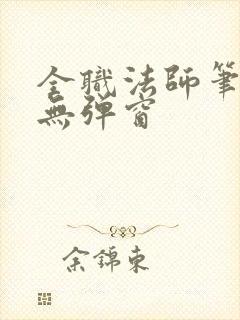 全職法師筆
無彈窗
余錦東